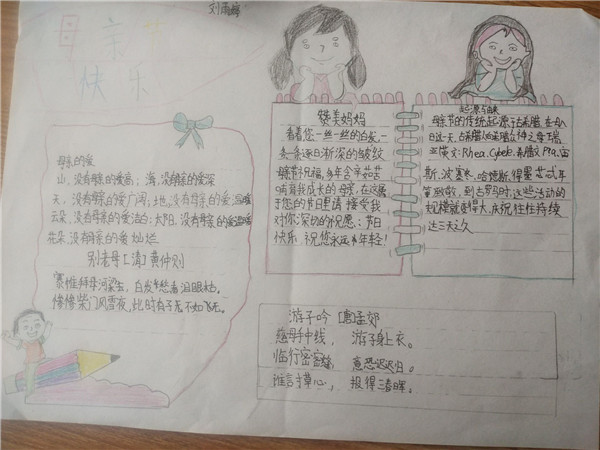 刘雨
母亲节
快乐
母亲的爱
山,没有母亲的爱高;海,没有母亲的爱深
天,没有母亲的爱广阔;地,没有母亲的爱温暖
云朵,没有母亲的爱洁白;太阳,没有母亲的爱温暖
花朵,没有母亲的爱灿烂
别老母[清]黄仲则
搴帷拜母河梁去,白发愁看泪眼枯。
惨惨柴门风雪夜,此时有子不如无。
赞美妈妈
看着您一丝一丝的白发,一
条一条逐日渐深的皱纹
母亲节祝福,多年含辛茹苦
哺育我成长的母亲,在这属
于您的节日里请接受我
对你深切的祝愿:节日
快乐,祝您永远年轻!
起源由来
母亲节的传统起源于古希腊,在
日这一天,古希腊人给希腊众神之母瑞
亚英文:Rhea,
斯,波塞冬,哈德斯,得墨忒式年
等致敬,到古罗马时,这些活动的
规模就更大,庆祝往往持续
达三天之久
游子吟 [唐]孟郊
慈母手中线, 游子身上衣。
临行密密缝, 意恐迟迟归。
谁言寸草心, 报得三春晖。